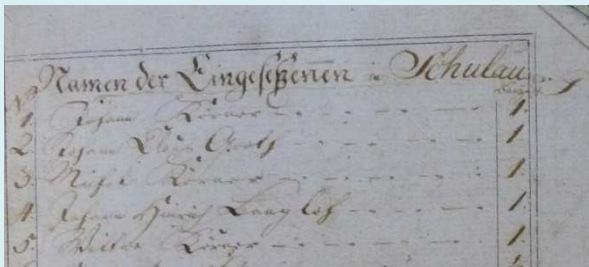 No Namen der Eingeseßenen in Schulau
1. Johann Körner — — — 1.
2. Johann Claus Groth — — — 1.
3. Michel Körner — — — 1.
4. Johann Hinrich Langeloh — — — 1.
5. Wittwe Körner — — — 1.